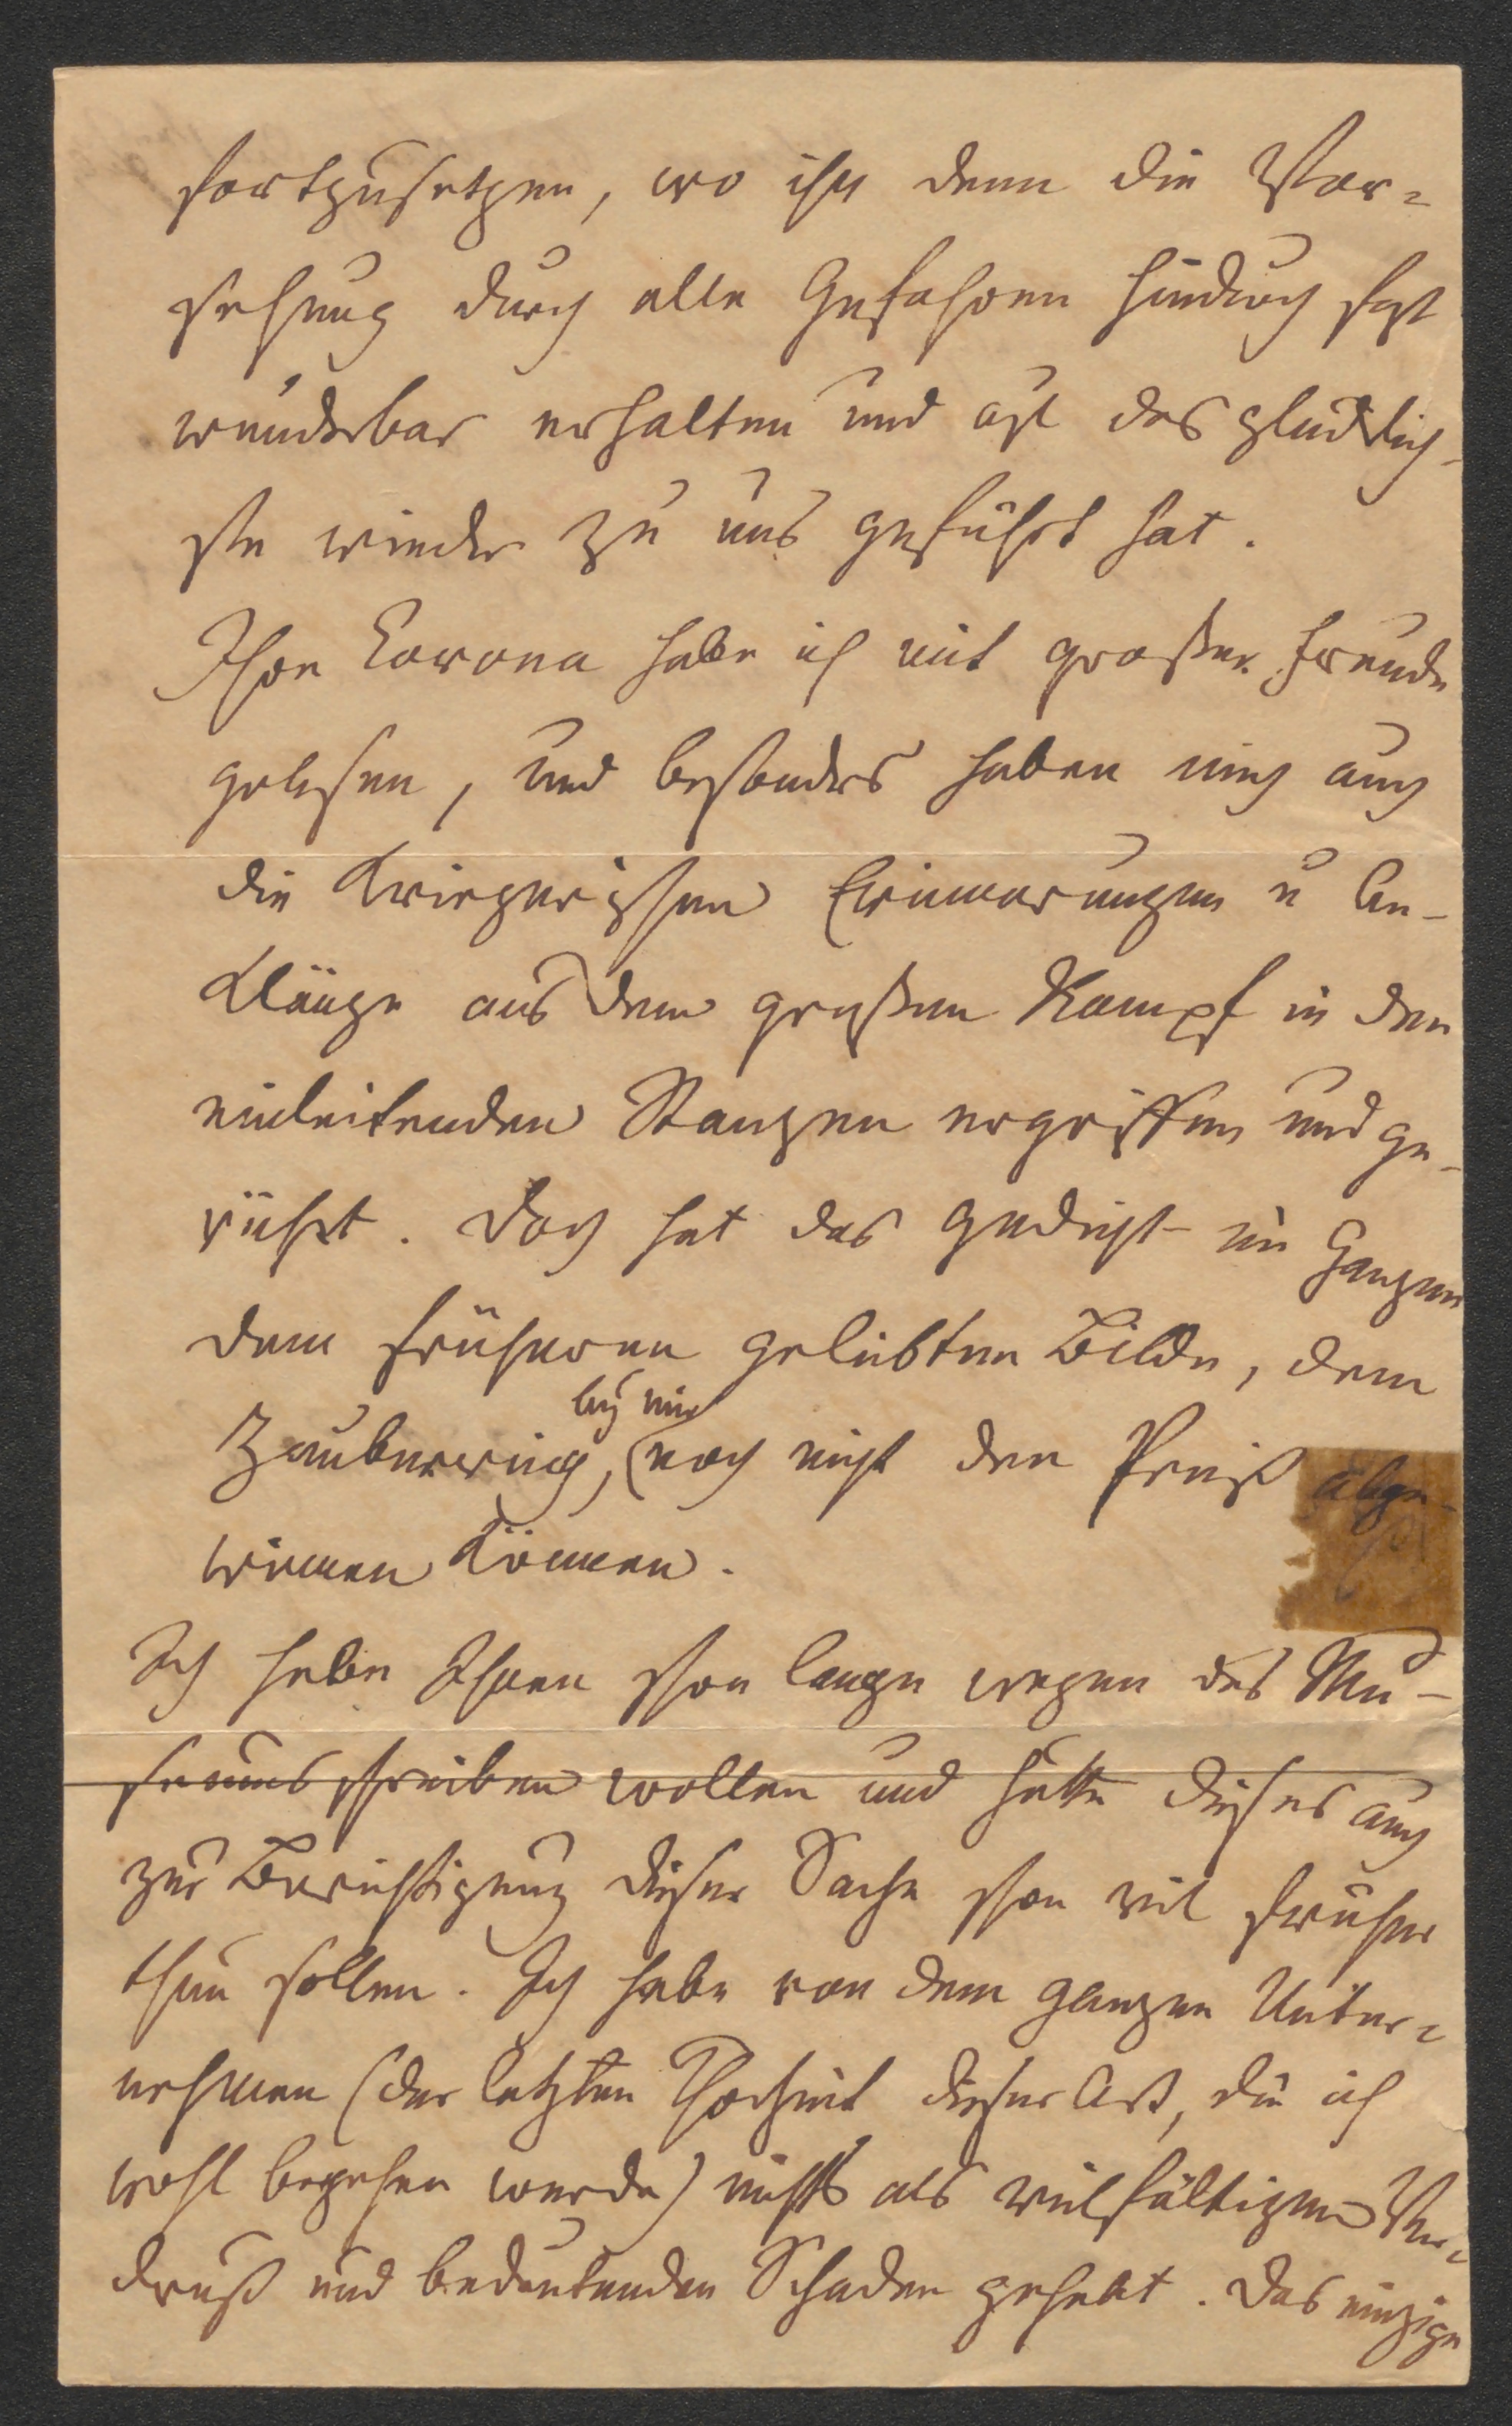 fortzusetzen, wo ihn denn die Vor=
sehung durch alle Gefahren hindurch fast
wunderbar erhalten und auf das glücklich-
ste wieder zu uns geführt hat.
Ihre Corona habe ich mit großer Freude
gelesen, und besonders haben mich auch
die kriegerischen Erinnerungen u An-
klänge aus dem großen Kampf in den
einleitenden Stanzen ergriffen und ge-
rührt. Doch hat das Gedicht im Ganzen
dem früheren geliebten Bilde, dem
bey mir
Zauberring, noch nicht den Preiß abge-
winnen können.
Ich habe Ihnen schon lange wegen des Mu-
seums schreiben wollen und hätte dieses auch
zur Berichtigung dieser Sache schon viel früher
thun sollen. Ich habe von dem ganzen Unter=
nehmen (der letzten Thorheit dieser Art, die ich
wohl begehen werde) nichts als vielfältigen Ver=
druß und bedeutenden Schaden gehabt. Das einzige